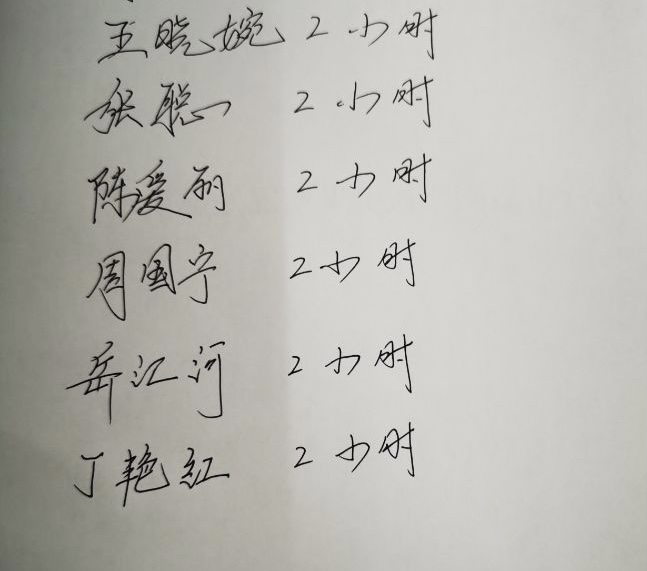 王晓婉 2小时
张聪 2小时
陈爱丽 2小时
周国宁 2小时
岳江河 2小时
丁艳红 2小时